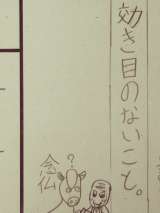 効き目のないこと。
?
念仏